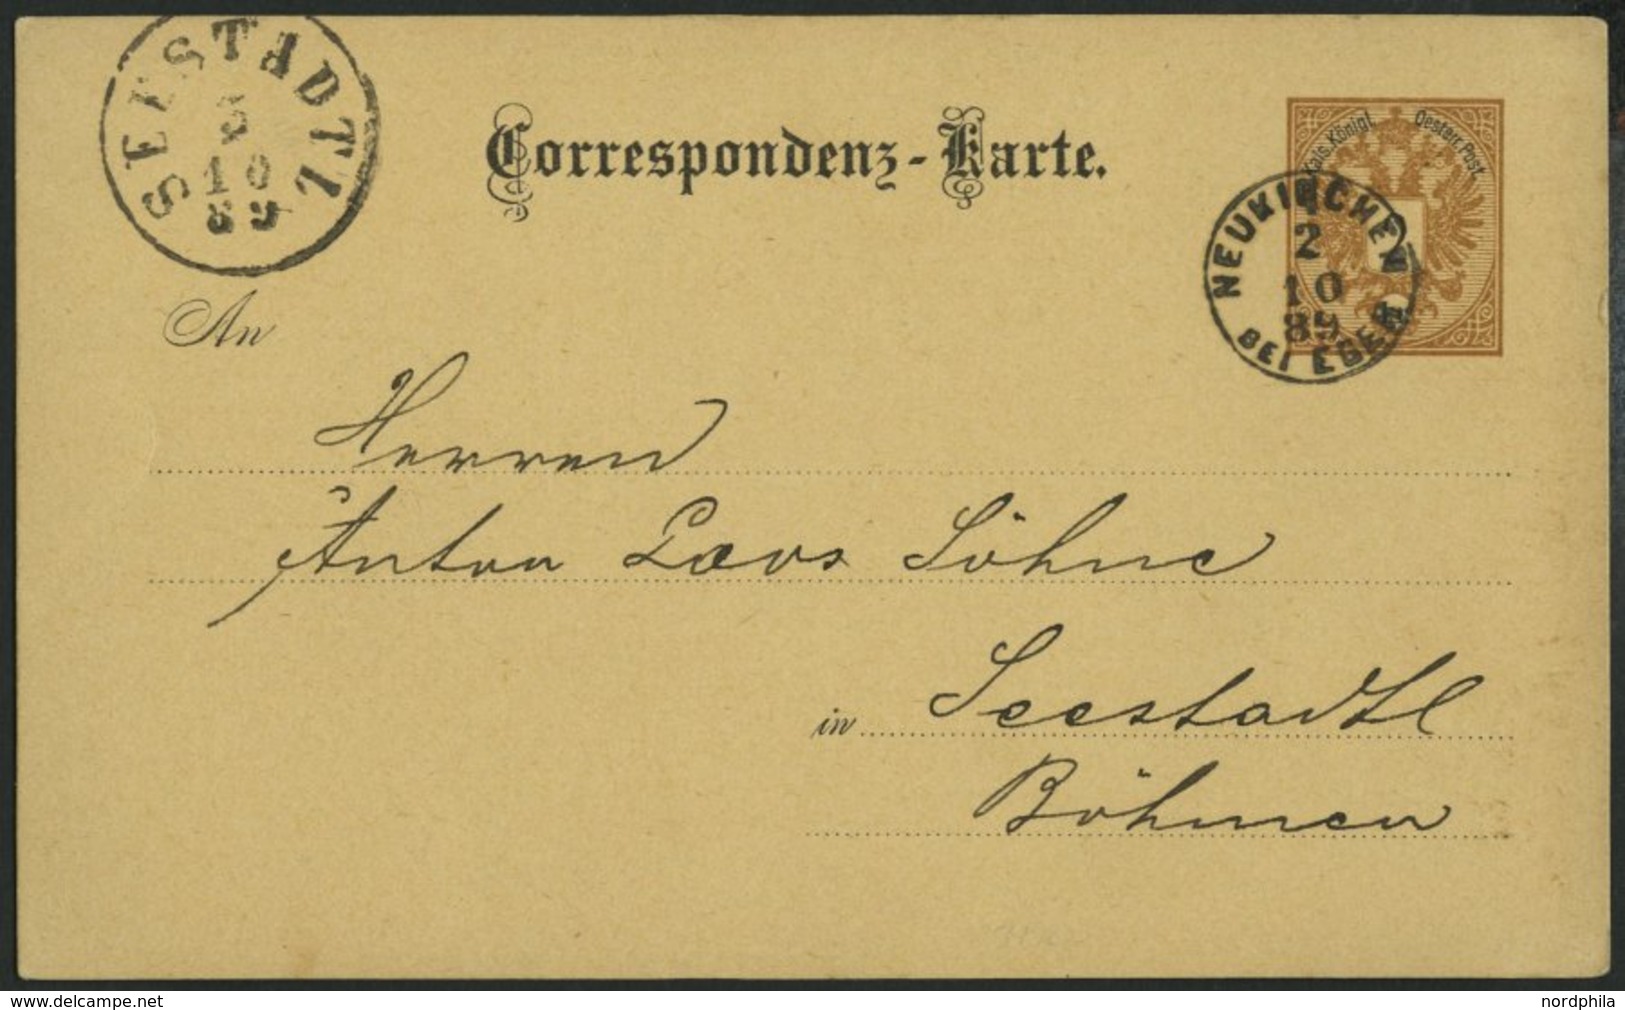 SEESTADTL
3
10
89
Correspondenz-Karte.
Kais. Königl. Oesterr. Post
2
NEUKIRCHEN
2
10
89
BEI EGER
An
Herren
Anton Loevs Söhne
in Seestadtl
Böhmen
www.delcampe.net
nordphila